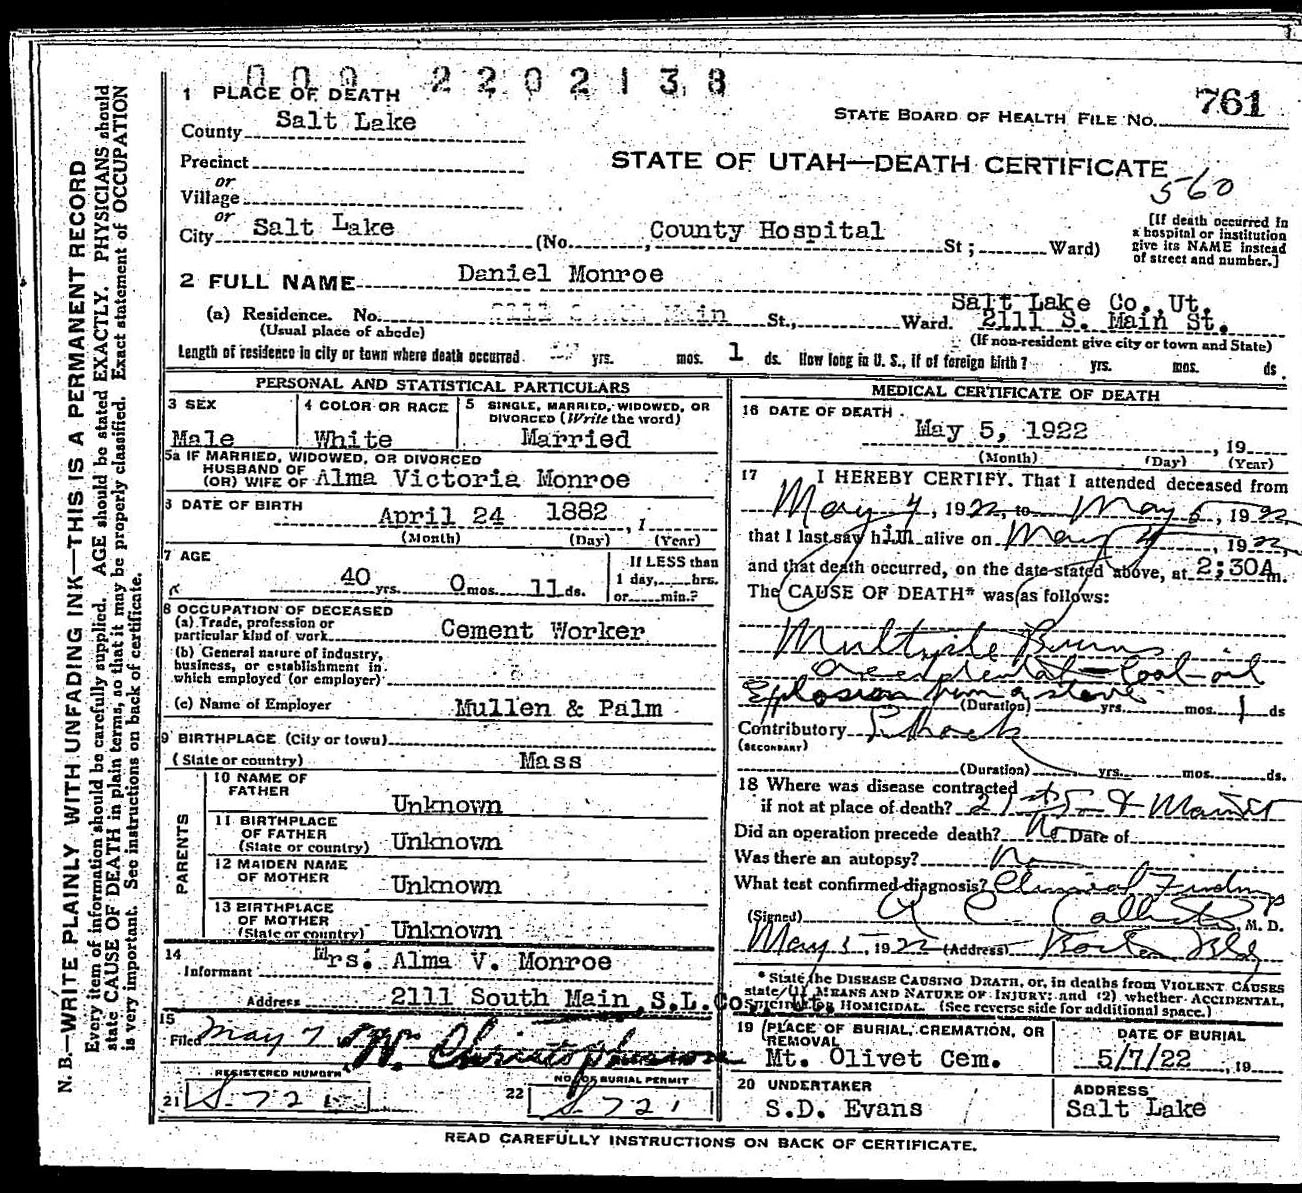 000 2202138
1 PLACE OF DEATH
STATE BOARD OF HEALTH FILE NO. 761
County Salt Lake
Precinct
STATE OF UTAH—DEATH CERTIFICATE
560
or
Village
or
City Salt Lake (No. , County Hospital St; Ward)
[If death occurred in
a hospital or institution
give its NAME instead
of street and number.]
2 FULL NAME Daniel Monroe
Salt Lake Co., Ut.
(a) Residence. No. 2111 South Main St., Ward. 2111 S. Main St.
(Usual place of abode) (If non-resident give city or town and State)
Length of residence in city or town where death occurred yrs. mos. 1 ds. How long in U. S., if of foreign birth? yrs. mos. ds.
PERSONAL AND STATISTICAL PARTICULARS
3 SEX 4 COLOR OR RACE 5 SINGLE, MARRIED, WIDOWED, OR
DIVORCED (Write the word)
Male White Married
5a IF MARRIED, WIDOWED, OR DIVORCED
HUSBAND OF
(OR) WIFE OF Alma Victoria Monroe
6 DATE OF BIRTH April 24 1882 , 1
(Month) (Day) (Year)
7 AGE If LESS than
40 yrs. 0 mos. 11 ds. 1 day, hrs.
or min.?
8 OCCUPATION OF DECEASED
(a) Trade, profession or
particular kind of work Cement Worker
(b) General nature of industry,
business, or establishment in
which employed (or employer)
(c) Name of Employer Mullen & Palm
9 BIRTHPLACE (City or town)
(State or country) Mass
PARENTS
10 NAME OF
FATHER Unknown
11 BIRTHPLACE
OF FATHER
(State or country) Unknown
12 MAIDEN NAME
OF MOTHER Unknown
13 BIRTHPLACE
OF MOTHER
(State or country) Unknown
14
Informant Mrs. Alma V. Monroe
Address 2111 South Main, S.L.Co., Ut.
15
Filed May 7 Wm Christopherson
REGISTERED NUMBER NO. OF BURIAL PERMIT
21 S-721 22 S-721
MEDICAL CERTIFICATE OF DEATH
16 DATE OF DEATH
May 5, 1922 , 19
(Month) (Day) (Year)
17 I HEREBY CERTIFY, That I attended deceased from
May 4, 1922, to May 5, 1922
that I last say him alive on May 4, 1922,
and that death occurred, on the date stated above, at 2:30A m.
The CAUSE OF DEATH* was as follows:
Multiple Burns
Accidental - Coal-oil
Explosion from a stove
(Duration) yrs. mos. 1 ds
Contributory Shock
(SECONDARY)
(Duration) yrs. mos. ds.
18 Where was disease contracted
if not at place of death? 21st S- & Main St
Did an operation precede death? No Date of
Was there an autopsy? No
What test confirmed diagnosis? Clinical Findings
(Signed) M. D.
May 5, 1922 (Address) Boston Bldg
* State the DISEASE CAUSING DEATH, or, in deaths from VIOLENT CAUSES
state (1) MEANS AND NATURE OF INJURY; and (2) whether ACCIDENTAL,
SUICIDAL OR HOMICIDAL. (See reverse side for additional space.)
19 PLACE OF BURIAL, CREMATION, OR
REMOVAL DATE OF BURIAL
Mt. Olivet Cem. 5/7/22 , 19
20 UNDERTAKER ADDRESS
S.D. Evans Salt Lake
READ CAREFULLY INSTRUCTIONS ON BACK OF CERTIFICATE.
N. B.—WRITE PLAINLY WITH UNFADING INK—THIS IS A PERMANENT RECORD
Every item of information should be carefully supplied. AGE should be stated EXACTLY. PHYSICIANS should
state CAUSE OF DEATH in plain terms, so that it may be properly classified. Exact statement of OCCUPATION
is very important. See instructions on back of certificate.